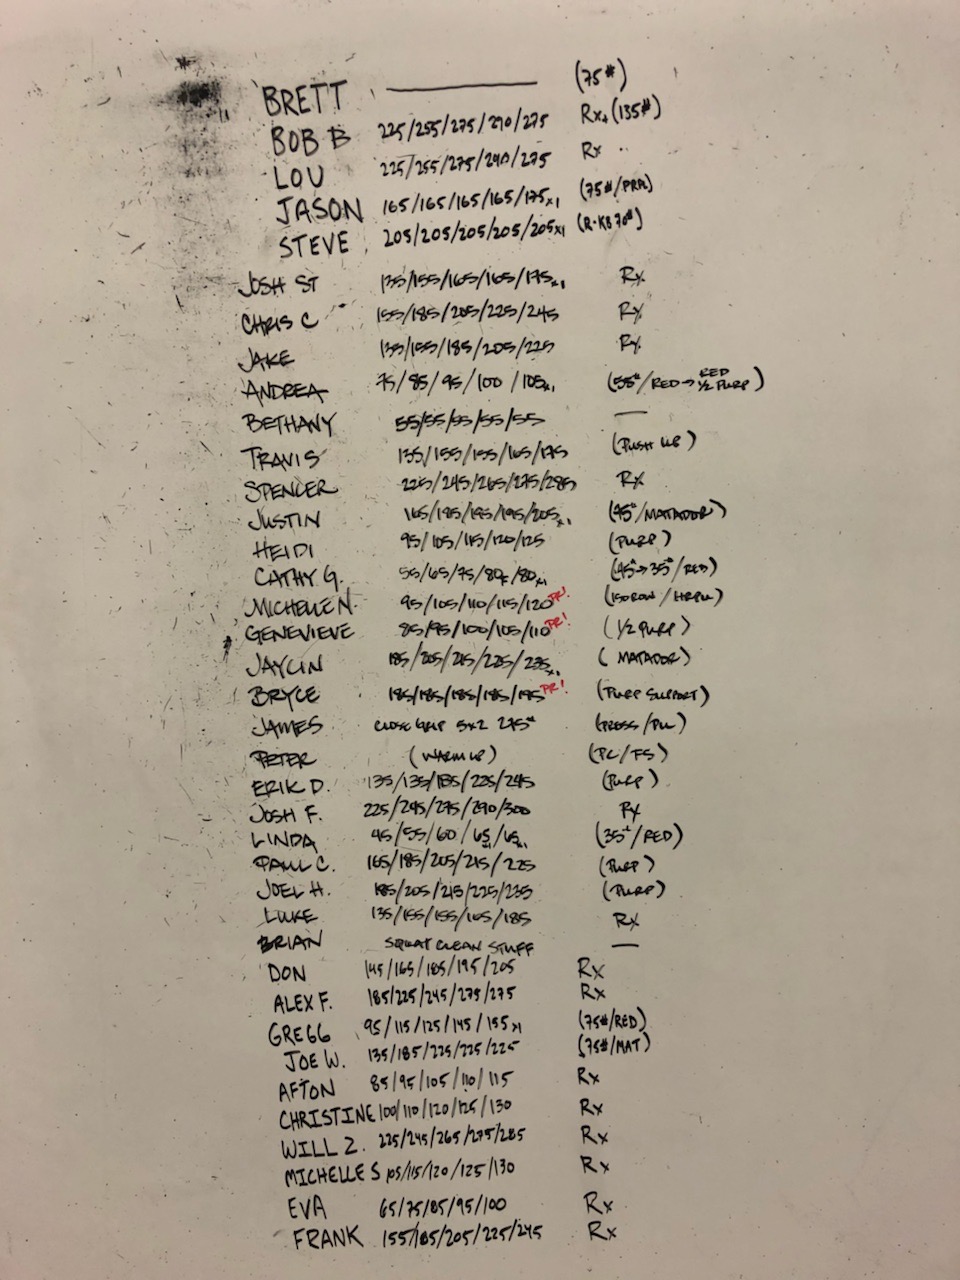 BRETT ——— (75#)
BOB B 225/255/275/290/275 Rx+ (135#)
LOU 225/255/275/290/275 Rx
JASON 165/165/165/165/175x1 (75#/PRPL)
STEVE 205/205/205/205/205x1 (R-KB 70#)
JOSH ST 135/155/165/165/175x1 Rx
CHRIS C 155/185/205/225/245 Rx
JAKE 135/155/185/205/225 Rx
ANDREA 75/85/95/100/105x1 (55#/RED→RED ½ PURP)
BETHANY 55/55/55/55/55 —
TRAVIS 135/155/155/165/175 (PUSH UP)
SPENCER 225/245/265/275/285 Rx
JUSTIN 165/185/195/195/205x1 (95#/MATADOR)
HEIDI 95/105/115/120/125 (PURP)
CATHY G. 55/65/75/80/80x1 (45#→35#/RED)
MICHELLE N. 95/105/110/115/120 PR! (150 ROW/HRPU)
GENEVIEVE 85/95/100/105/110 PR! (1/2 PURP)
JAYLIN 185/205/215/225/235x1 (MATADOR)
BRYCE 185/185/185/185/195 PR! (PURP SUPPORT)
JAMES CLOSE GRIP 5x2 275# (PRESS/PU)
PETER (WARM UP) (PC/FS)
ERIK D. 135/135/185/225/245 (PURP)
JOSH F. 225/245/275/290/300 Rx
LINDA 45/55/60/65x1/65x1 (35#/RED)
PAUL C. 165/185/205/215/225 (PURP)
JOEL H. 185/205/215/225/235 (PURP)
LUKE 135/155/155/165/185 Rx
BRIAN SQUAT CLEAN STUFF —
DON 145/165/185/195/205 Rx
ALEX F. 185/225/245/275/275 Rx
GREGG 95/115/125/145/155x1 (75#/RED)
JOE W. 135/185/225/225/225 (75#/MAT)
AFTON 85/95/105/110/115 Rx
CHRISTINE 100/110/120/125/130 Rx
WILL Z. 225/245/265/275/285 Rx
MICHELLE S 105/115/120/125/130 Rx
EVA 65/75/85/95/100 Rx
FRANK 155/185/205/225/245 Rx